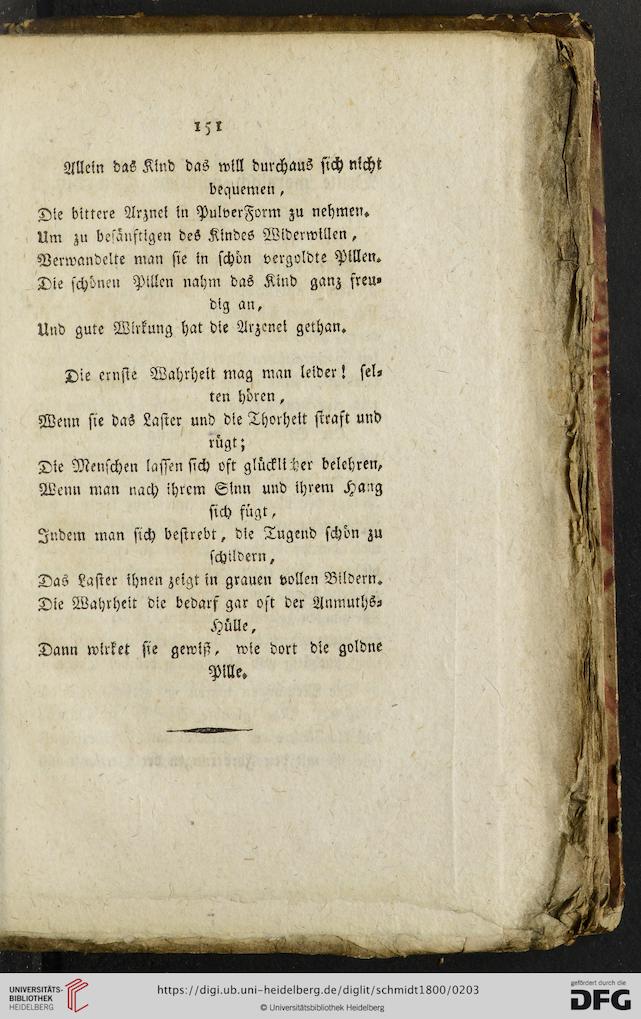 151
Allein das Kind das will durchaus sich nicht
bequemen,
Die bittere Arznei in PulverForm zu nehmen.
Um zu besänftigen des Kindes Widerwillen,
Verwandelte man sie in schön vergoldte Pillen.
Die schönen Pillen nahm das Kind ganz freu-
dig an,
Und gute Wirkung hat die Arzenei gethan.
Die ernste Wahrheit mag man leider! sel-
ten hören,
Wenn sie das Laster und die Thorheit straft und
rügt;
Die Menschen lassen sich oft glücklicher belehren,
Wenn man nach ihrem Sinn und ihrem Hang
sich fügt,
Indem man sich bestrebt, die Tugend schön zu
schildern,
Das Laster ihnen zeigt in grauen vollen Bildern.
Die Wahrheit die bedarf gar oft der Anmuths-
Hülle,
Dann wirket sie gewiß, wie dort die goldne
Pille.
UNIVERSITÄTS-
BIBLIOTHEK
HEIDELBERG
https://digi.ub.uni-heidelberg.de/diglit/schmidt1800/0203
© Universitätsbibliothek Heidelberg
gefördert durch die
DFG